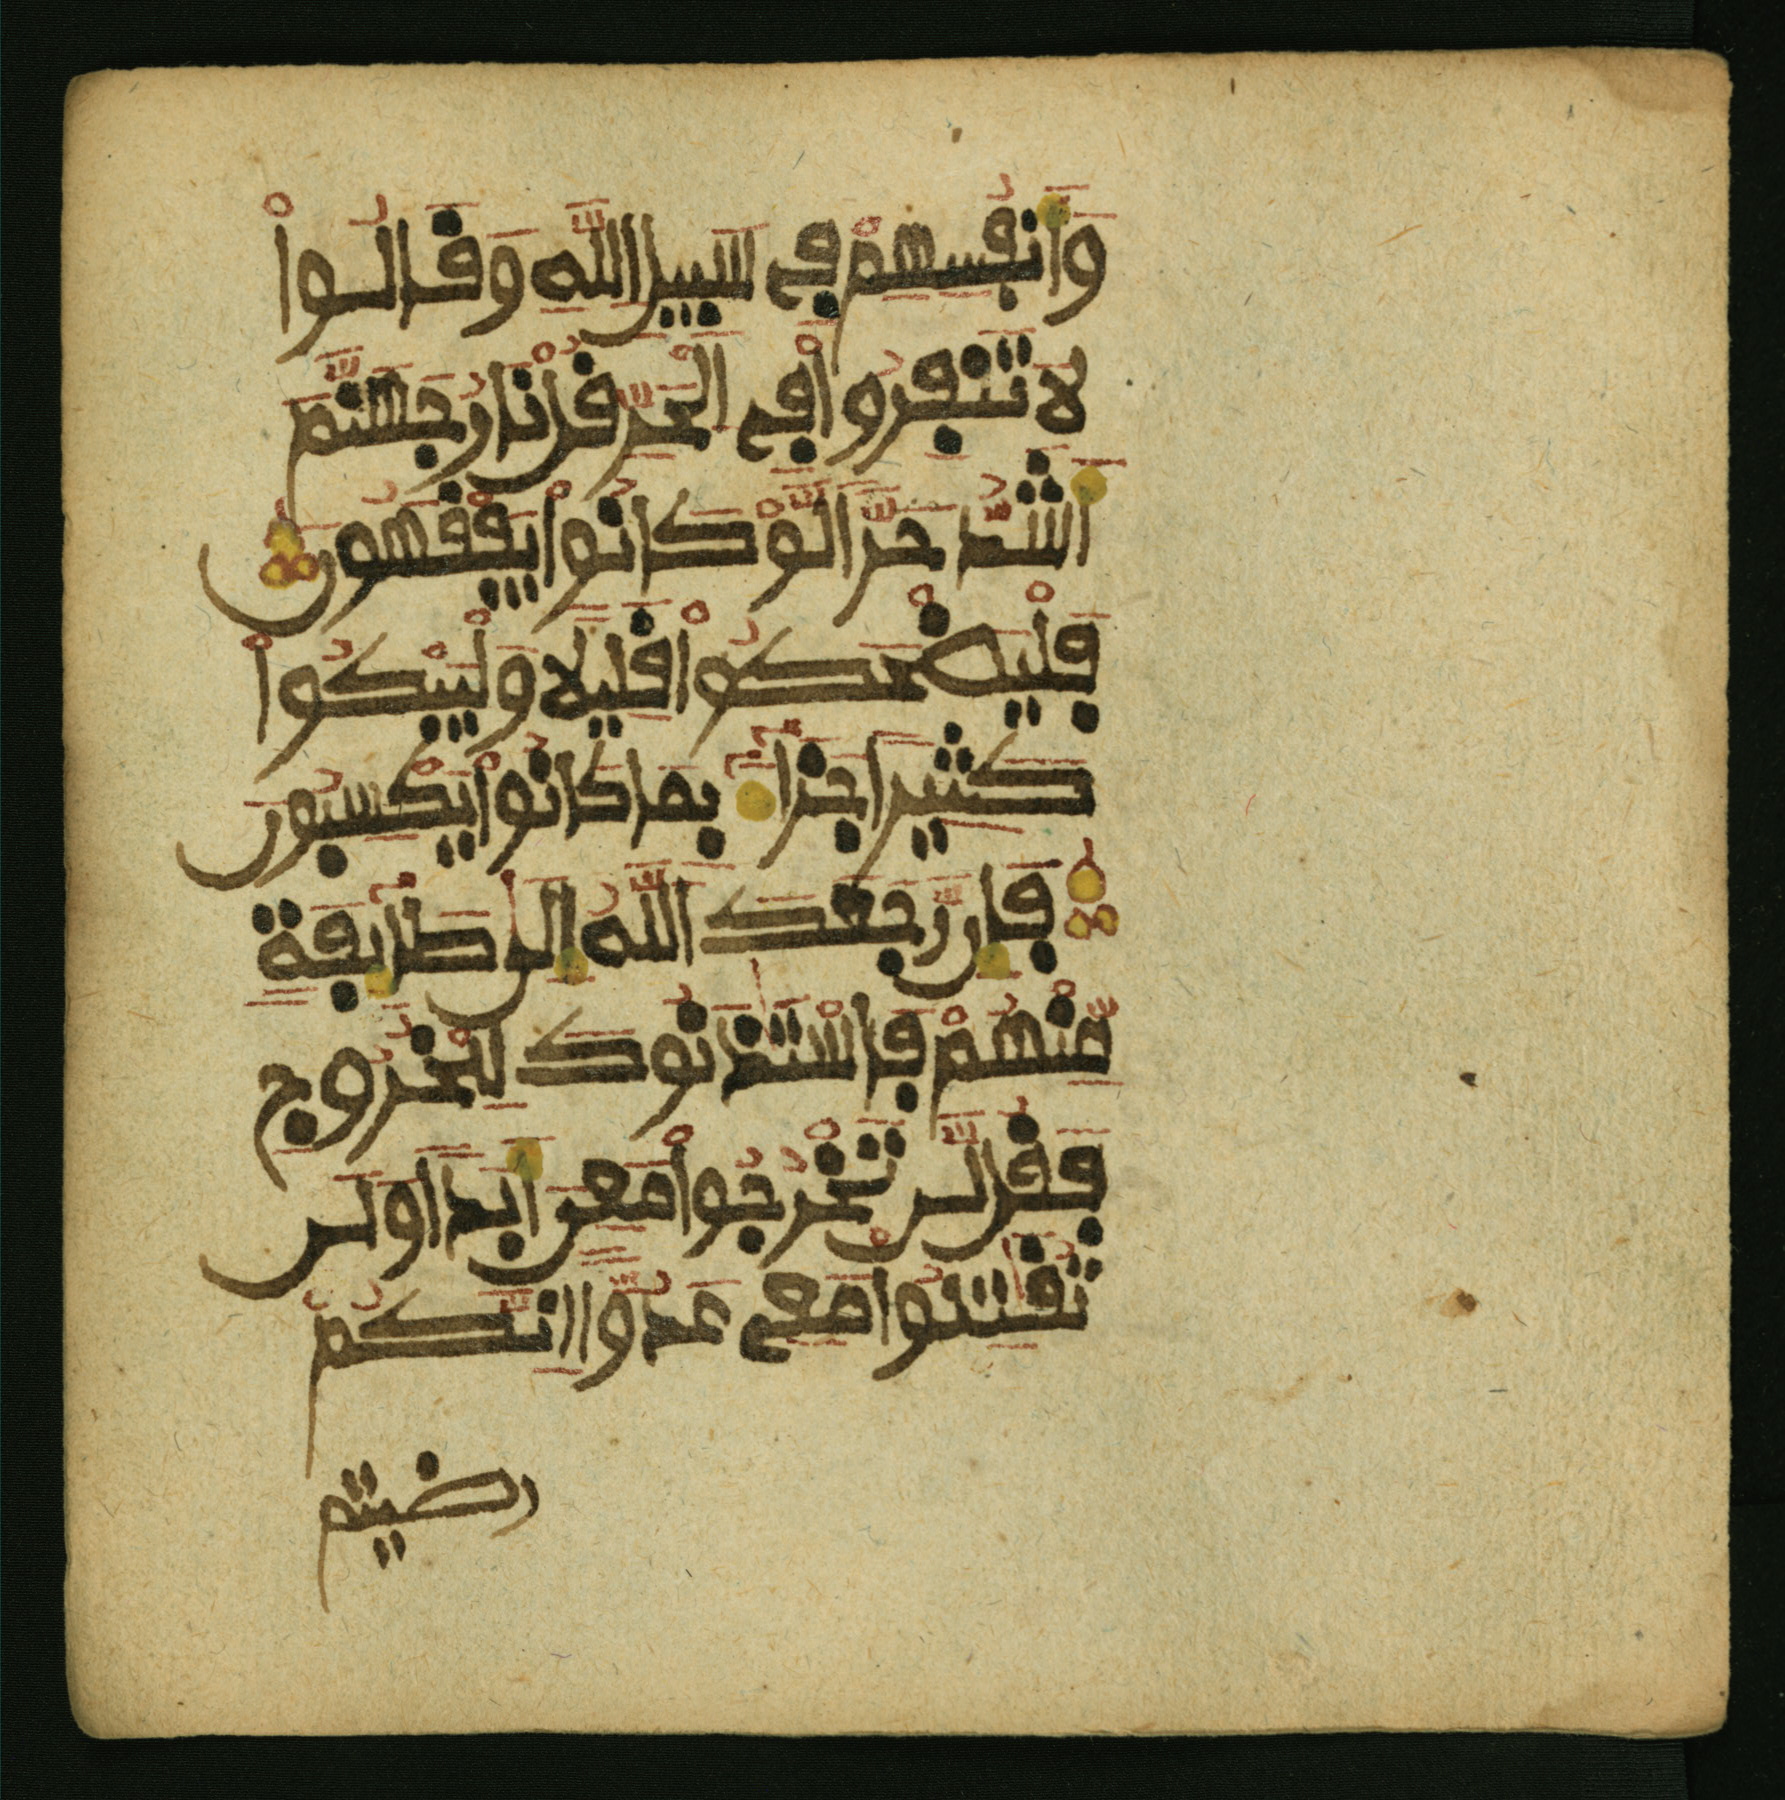 وَأَنفُسِهِمْ فِي سَبِيلِ اللَّهِ وَقَالُواْ
لَا تَنفِرُواْ فِي الْحَرِّ قُلْ نَارُ جَهَنَّمَ
أَشَدُّ حَرًّا لَّوْ كَانُواْ يَفْقَهُونَ
فَلْيَضْحَكُواْ قَلِيلًا وَلْيَبْكُواْ
كَثِيرًا جَزَاءً بِمَا كَانُواْ يَكْسِبُونَ
فَإِن رَّجَعَكَ اللَّهُ إِلَى طَائِفَةٍ
مِّنْهُمْ فَاسْتَـٔذَنُوكَ لِلْخُرُوجِ
فَقُل لَّن تَخْرُجُواْ مَعِيَ أَبَدًا وَلَن
تُقَٰتِلُواْ مَعِي عَدُوًّا إِنَّكُمْ
رضيتم